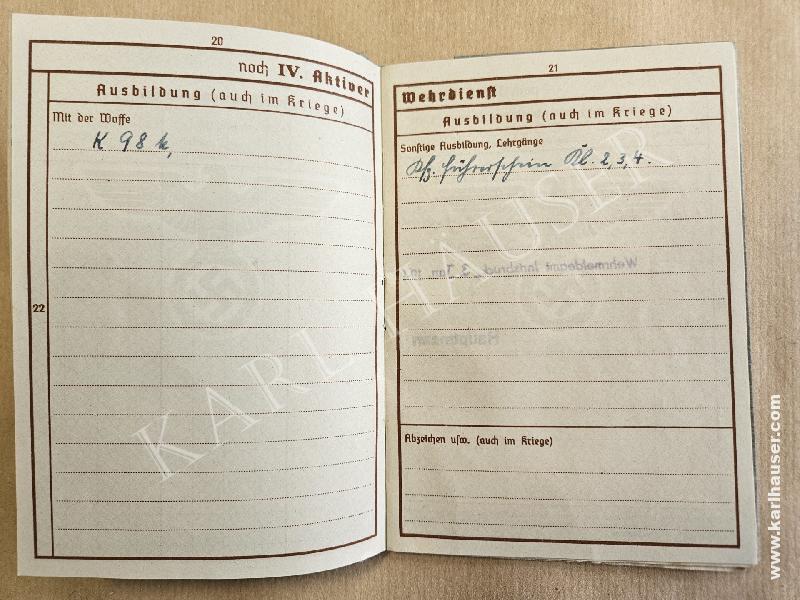 20
noch IV. Aktiver
Ausbildung (auch im Kriege)
Mit der Waffe
K 98 k,
22
21
Wehrdienst
Ausbildung (auch im Kriege)
Sonstige Ausbildung, Lehrgänge
Kfz. führerschein Kl. 2, 3, 4.
Wehrmeldeamt Innsbruck, 3. Jan.
Hauptmann
Abzeichen usw. (auch im Kriege)
KARL HÄUSER
www.karlhauser.com